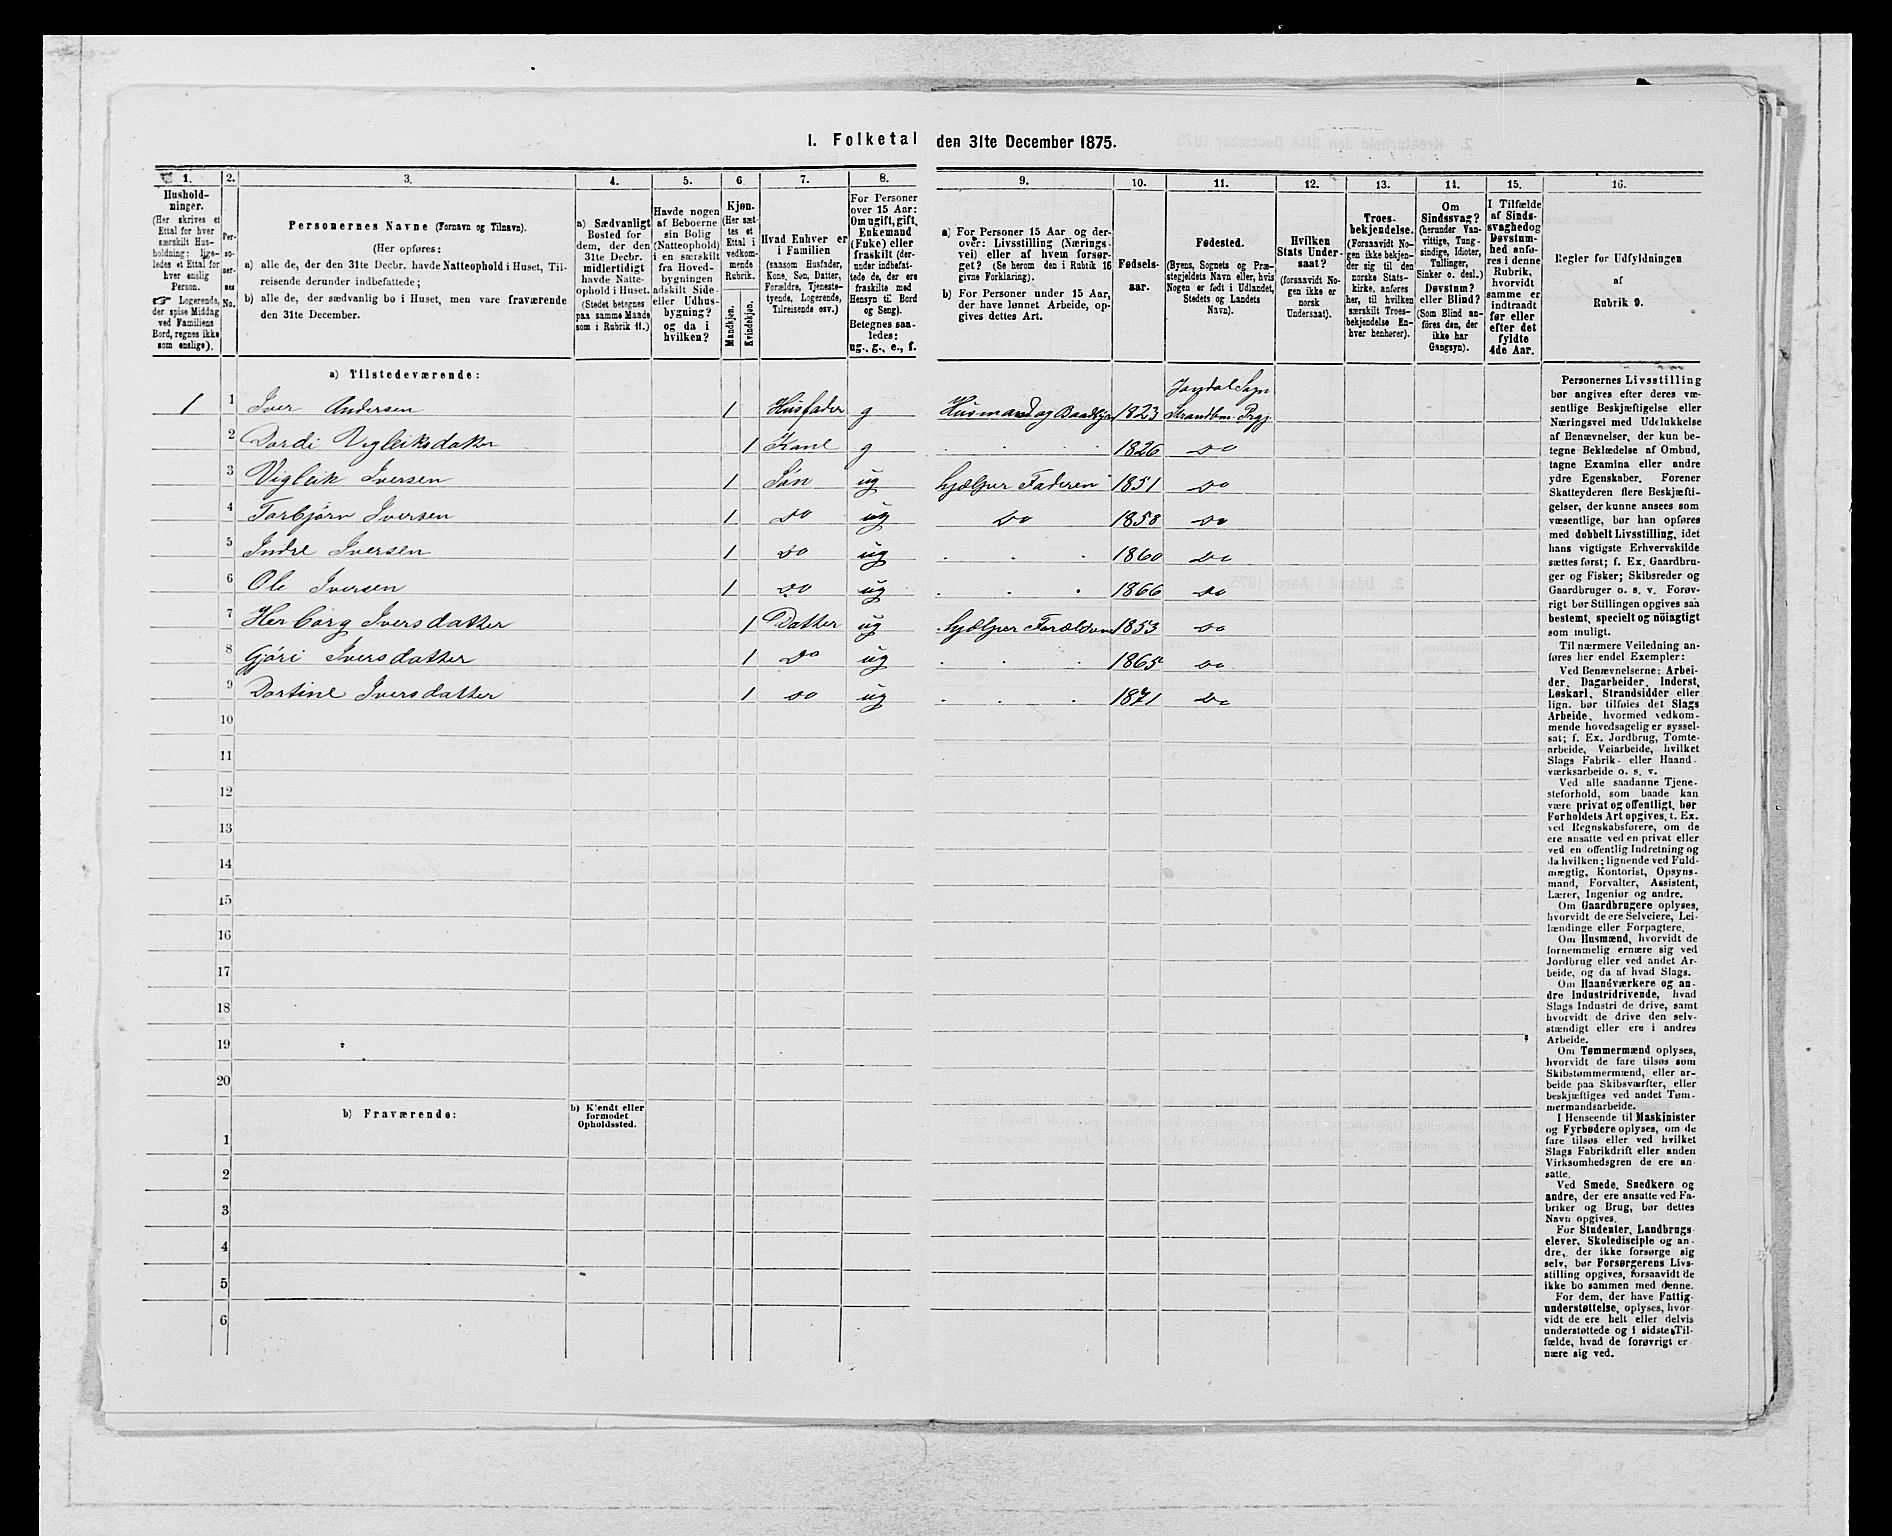 1. Folketal den 31te December 1875.
1. 2. 3. 4. 5. 6. 7. 8. 9. 10. 11. 12. 13. 14. 15. 16.
Hushold-
ninger.
(Her skrives et
Ettal for hver
særskilt Hus-
holdning; lige-
ledes et Ettal for
hver enslig
Person.
☞ Logerende,
der spise Middag
ved Familiens
Bord, regnes ikke
som enslige).
Per-
so-
ner-
nes
No.
Personernes Navne (Fornavn og Tilnavn).
(Her opføres:
a) alle de, der den 31te Decbr. havde Natteophold i Huset, Til-
reisende derunder indbefattede;
b) alle de, der sædvanlig bo i Huset, men vare fraværende
den 31te December.
a) Sædvanligt
Bosted for
dem, der den
31te Decbr.
midlertidigt
havde Natte-
ophold i Huset.
(Stedet betegnes
paa samme Maade
som i Rubrik 11.)
Havde nogen
af Beboerne
sin Bolig
(Natteophold)
i en særskilt
fra Hoved-
bygningen
adskilt Side-
eller Udhus-
bygning?
og da i
hvilken?
Kjøn.
(Her sæt-
tes et
Ettal i
vedkom-
mende
Rubrik.
Mandkjøn.
Kvindekjøn.
Hvad Enhver er
i Familien
(saasom Husfader,
Kone, Søn, Datter,
Forældre, Tjeneste-
tyende, Logerende,
Tilreisende osv.)
For Personer
over 15 Aar:
Om ugift, gift,
Enkemand
(Enke) eller
fraskilt (der-
under indbefat-
tede de, der ere
fraskilte med
Hensyn til Bord
og Seng).
Betegnes saa-
ledes:
ug., g., e., f.
a) For Personer 15 Aar og der-
over: Livsstilling (Nærings-
vei) eller af hvem forsør-
get? (Se herom den i Rubrik 16
givne Forklaring).
b) For Personer under 15 Aar,
der have lønnet Arbeide, op-
gives dettes Art.
Fødsels-
aar.
Fødested.
(Byens, Sognets og Præ-
stegjeldets Navn eller, hvis
Nogen er født i Udlandet,
Stedets og Landets
Navn).
Hvilken
Stats Under-
saat?
(forsaavidt No-
gen ikke er
norsk
Undersaat).
Troes-
bekjendelse.
(Forsaavidt No-
gen ikke bekjen-
der sig til den
norske Stats-
kirke, anføres
her, til hvilken
særskilt Troes-
bekjendelse En-
hver henhører).
Om
Sindssvag?
(herunder Van-
vittige, Tung-
sindige, Idioter,
Tullinger,
Sinker o. desl.)
Døvstum?
eller Blind?
(Som Blind an-
føres den, der
ikke har
Gangsyn).
I Tilfælde
af Sinds-
svaghed og
Døvstum-
hed anfø-
res i denne
Rubrik,
hvorvidt
samme er
indtraadt
før eller
efter det
fyldte
4de Aar.
Regler for Udfyldningen
af
Rubrik 9.
a) Tilstedeværende:
Jondal Sogn
1 1 Iver Andersen 1 Husfader g Husmand og Baadbygger 1823 Strandbm. Prgj
2 Dordi Vigleiksdatter 1 Kone g 1826 Do
3 Vigleik Iversen 1 Søn ug hjælper Faderen 1851 Do
4 Torbjørn Iversen 1 Do ug Do 1858 Do
5 Indre Iversen 1 Do ug 1860 Do
6 Ole Iversen 1 Do ug 1866 Do
7 Herborg Iversdatter 1 Datter ug hjælper Forældrene 1853 Do
8 Gjøri Iversdatter 1 Do ug 1865 Do
9 Dortine Iversdatter 1 Do ug 1871 Do
10
11
12
13
14
15
16
17
18
19
20
b) Fraværende:
b) Kjendt eller
formodet
Opholdssted.
1
2
3
4
5
6
Personernes Livsstilling
bør angives efter deres væ-
sentlige Beskjæftigelse eller
Næringsvei med Udelukkelse
af Benævnelser, der kun be-
tegne Beklædelse af Ombud,
tagne Examina eller andre
ydre Egenskaber. Forener
Skatteyderen flere Beskjæfti-
gelser, der kunne ansees som
væsentlige, bør han opføres
med dobbelt Livsstilling, idet
hans vigtigste Erhvervskilde
sættes først; f. Ex. Gaardbru-
ger og Fisker; Skibsreder og
Gaardbruger o. s. v. Forøv-
rigt bør Stillingen opgives saa
bestemt, specielt og nøiagtigt
som muligt.
Til nærmere Veiledning an-
føres her endel Exempler:
Ved Benævnelserne: Arbei-
der, Dagarbeider, Inderst,
Løskarl, Strandsidder eller
lign. bør tilføies det Slags
Arbeide, hvormed vedkom-
mende hovedsagelig er syssel-
sat; f. Ex. Jordbrug, Tomte-
arbeide, Veiarbeide, hvilket
Slags Fabrik- eller Haand-
værksarbeide o. s. v.
Ved alle saadanne Tjene-
steforhold, som baade kan
være privat og offentligt, bør
Forholdets Art opgives, t. Ex.
ved Regnskabsførere, om de
ere ansatte ved en privat eller
ved en offentlig Indretning og
da hvilken; lignende ved Fuld-
mægtig, Kontorist, Opsyns-
mand, Forvalter, Assistent,
Lærer, Ingeniør og andre.
Om Gaardbrugere oplyses,
hvorvidt de ere Selveiere, Lei-
lændinge eller Forpagtere.
Om Husmænd, hvorvidt de
fornemmelig ernære sig ved
Jordbrug eller ved andet Ar-
beide, og da af hvad Slags.
Om Haandværkere og an-
dre Industridrivende, hvad
Slags Industri de drive, samt
hvorvidt de drive den selv-
stændigt eller ere i andres
Arbeide.
Om Tømmermænd oplyses,
hvorvidt de fare tilsøs som
Skibstømmermænd, eller ar-
beide paa Skibsværfter, eller
beskjæftiges ved andet Tøm-
mermandsarbeide.
I Henseende til Maskinister
og Fyrbødere oplyses, om de
fare tilsøs eller ved hvilket
Slags Fabrikdrift eller anden
Virksomhedsgren de ere an-
satte.
Ved Smede, Snedkere og
andre, der ere ansatte ved Fa-
briker og Brug, bør dettes
Navn opgives.
For Studenter, Landbrugs-
elever, Skoledisciple og an-
dre, der ikke forsørge sig
selv, bør Forsørgerens Livs-
stilling opgives, forsaavidt de
ikke bo sammen med denne.
For dem, der have Fattig-
understøttelse, oplyses, hvor-
vidt de ere helt eller delvis
understøttede og i sidste Til-
fælde, hvad de forøvrigt er-
nære sig ved.